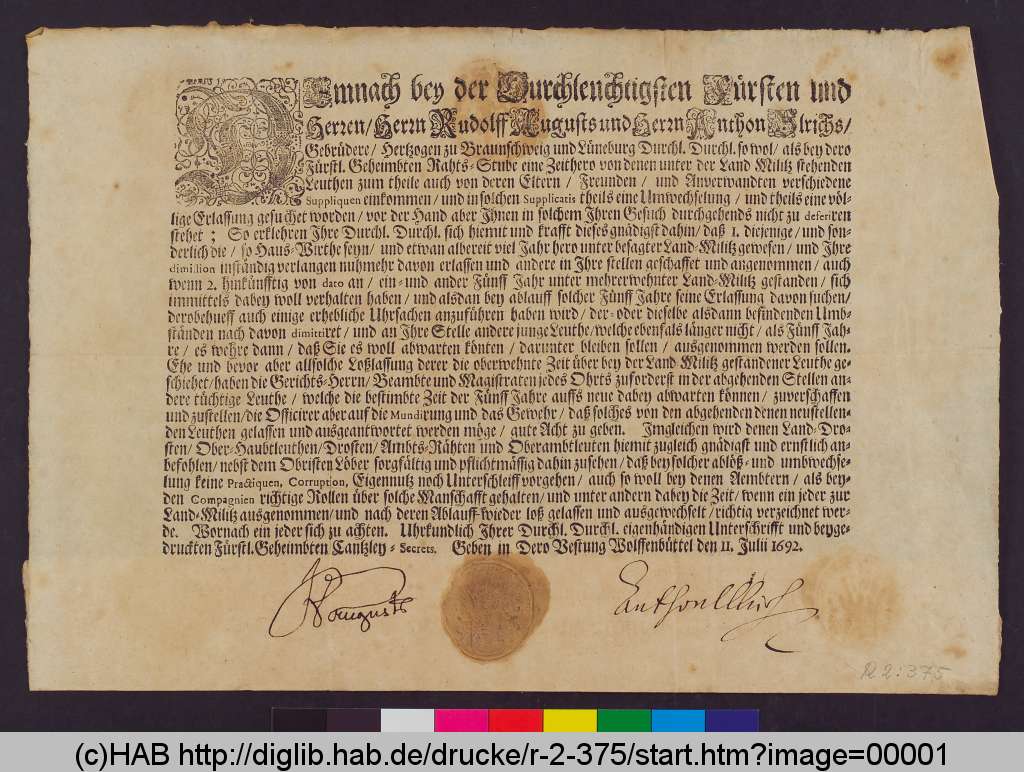 DEmnach bey der Durchleuchtigsten Fürsten und
Herren/ Herrn Rudolff Augusts und Herrn Anthon Ulrichs/
Gebrüdere/ Hertzogen zu Braunschweig und Lüneburg Durchl. Durchl. so wol/ als bey dero
Fürstl. Geheimbten Rahts-Stube eine Zeithero von denen unter der Land Militz stehenden
Leuthen zum theile auch von deren Eltern / Freunden / und Anverwandten verschiedene
Suppliquen einkommen/ und in solchen Supplicatis theils eine Umwechselung / und theils eine völ-
lige Erlassung gesuchet worden/ vor der Hand aber Ihnen in solchem Ihren Gesuch durchgehends nicht zu deferiren
stehet; So erklehren Ihre Durchl. Durchl. sich hiemit und krafft dieses gnädigst dahin/ daß 1. diejenige/ und son-
derlich die / so Haus-Wirthe seyn/ und etwan albereit viel Jahr hero unter besagter Land-Militz gewesen/ und Ihre
dimission inständig verlangen nuhmehr davon erlassen und andere in Ihre stellen geschaffet und angenommen/ auch
wenn 2. hinkünfftig von dato an / ein- und ander Fünff Jahr unter mehrerwehnter Land-Militz gestanden/ sich
immittels dabey woll verhalten haben/ und alsdan bey ablauff solcher Fünff Jahre seine Erlassung davon suchen/
derobehueff auch einige erhebliche Uhrsachen anzuführen haben wird/ der- oder dieselbe alsdann befindenden Umb-
ständen nach davon dimittiret/ und an Ihre Stelle andere junge Leuthe/ welche ebenfals länger nicht/ als Fünff Jah-
re/ es wehre dann/ daß Sie es woll abwarten könten / darunter bleiben sollen / ausgenommen werden sollen.
Ehe und bevor aber allsolche Loßlassung derer die oberwehnte Zeit über bey der Land Militz gestandener Leuthe ge-
schiehet/ haben die Gerichts-Herrn/ Beambte und Magistraten jedes Ohrts zuforderst in der abgehenden Stellen an-
dere tüchtige Leuthe / welche die bestimbte Zeit der Fünff Jahre auffs neue dabey abwarten können / zuverschaffen
und zustellen/ die Officirer aber auf die Mundirung und das Gewehr/ daß solches von den abgehenden denen neustellen-
den Leuthen gelassen und ausgeantwortet werden möge/ gute Acht zu geben. Imgleichen wird denen Land-Dro-
sten/ Ober-Haubtleuthen/ Drosten/ Ambts-Rähten und Oberambtleuten hiemit zugleich gnädigst und ernstlich an-
befohlen/ nebst dem Obristen Löber sorgfältig und pflichtmässig dahin zusehen/ daß bey solcher ablöß- und umbwechse-
lung keine Practiquen, Corruption, Eigennutz noch Unterschleiff vorgehen/ auch so woll bey denen Aembtern/ als bey-
den Compagnien richtige Rollen über solche Manschafft gehalten/ und unter andern dabey die Zeit/ wenn ein jeder zur
Land-Militz ausgenommen/ und nach deren Ablauff wieder loß gelassen und ausgewechselt/ richtig verzeichnet wer-
de. Wornach ein jeder sich zu achten. Uhrkundlich Ihrer Durchl. Durchl. eigenhändigen Unterschrifft und beyge-
druckten Fürstl. Geheimbten Cantzley-Secrets. Geben in Dero Vestung Wolffenbüttel den 11. Julii 1692.
RAugusts
Anthon Ulrich
R 2:375
(c)HAB http://diglib.hab.de/drucke/r-2-375/start.htm?image=00001